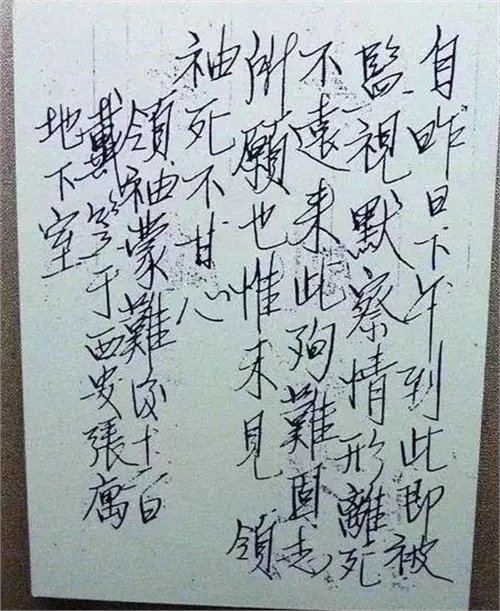 自昨日下午到此即被
監視默察情形離死
不遠来此殉難固志
所願也惟未見 領
袖死不甘心
領袖蒙難後十二日
戴笠于西安張寓
地下室